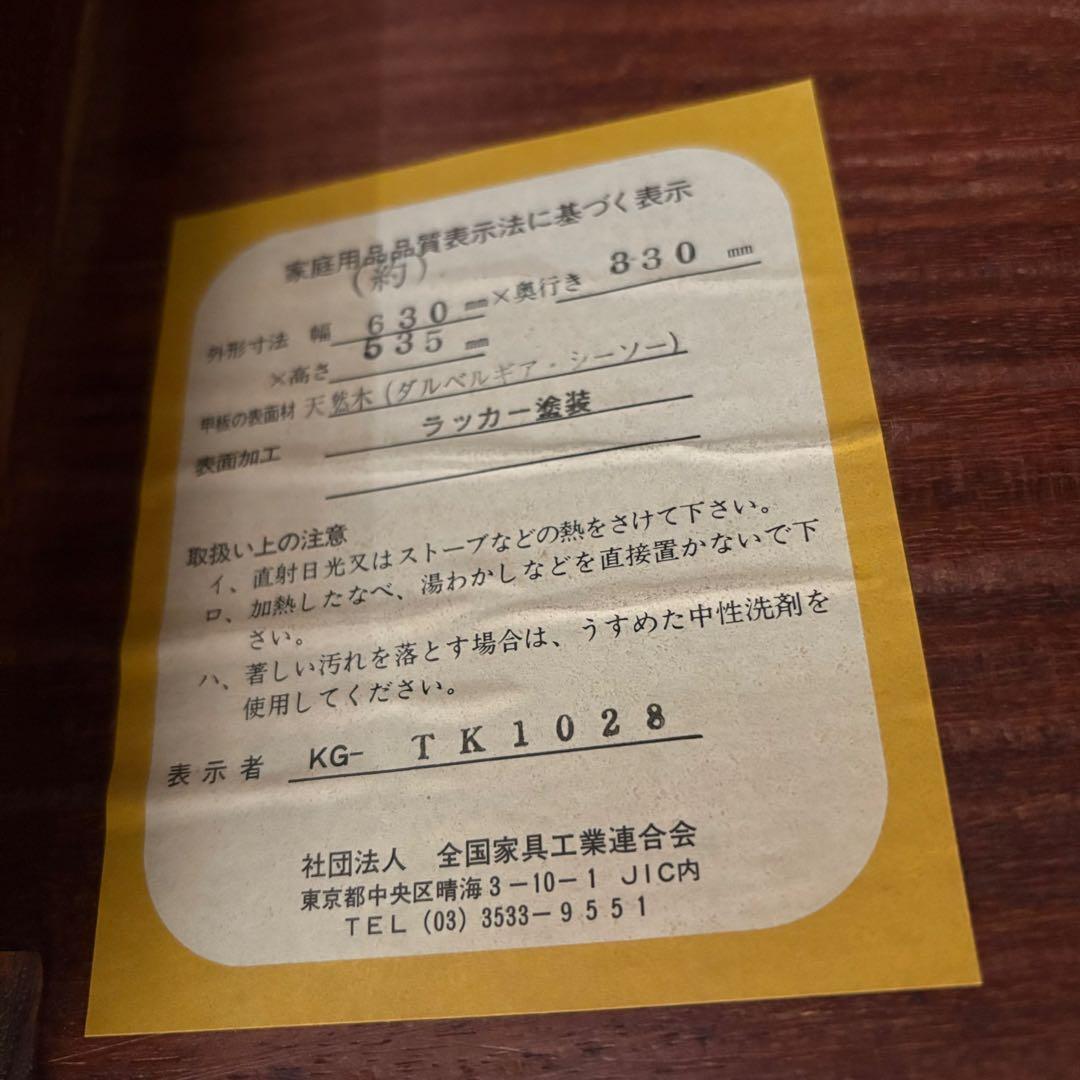 家庭用品品質表示法に基づく表示
(約)
外形寸法 幅 630 mm ×奥行き 330 mm
×高さ 535 mm
甲板の表面材 天然木(ダルベルギア・シーソー)
表面加工 ラッカー塗装
取扱い上の注意
イ、直射日光又はストーブなどの熱をさけて下さい。
ロ、加熱したなべ、湯わかしなどを直接置かないで下
さい。
ハ、著しい汚れを落とす場合は、うすめた中性洗剤を
使用してください。
表示者 KG- TK1028
社団法人 全国家具工業連合会
東京都中央区晴海3-10-1 JIC内
TEL (03) 3533-9551